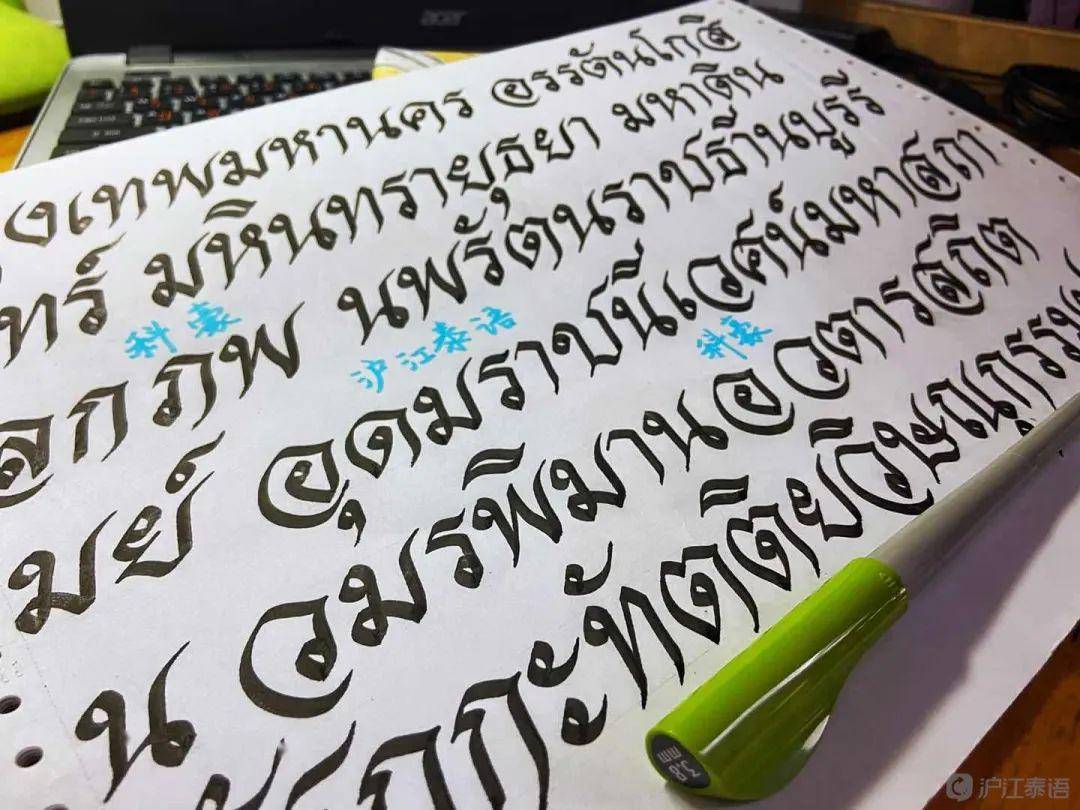 acer
งเทพมหานคร อรรัตนโกสิ
ทร์ มหินทรายุธยา มหาดิน
ลกภพ นพรัตนราชธานีบูรี
มย์ อุดมราชนิเวศน์มหาสถา
น อมรพิมานอวตารสถิต
กกะทัตติยวิษณุกรรม
科蒙
沪江泰语
科蒙
3.8 mm
沪江泰语